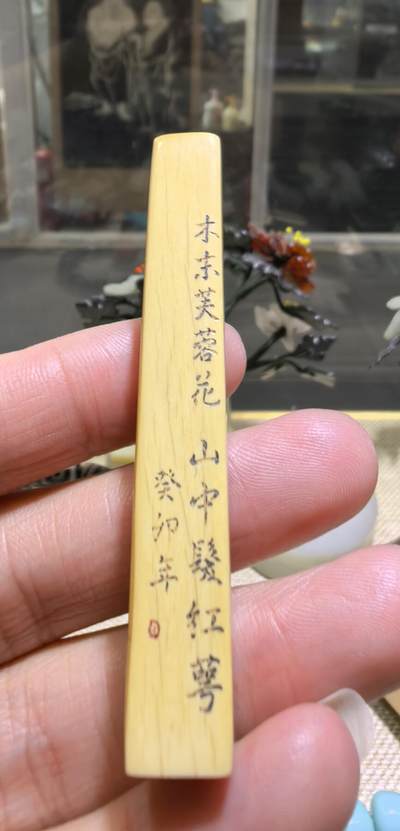 木末芙蓉花 山中髮红萼
癸卯年